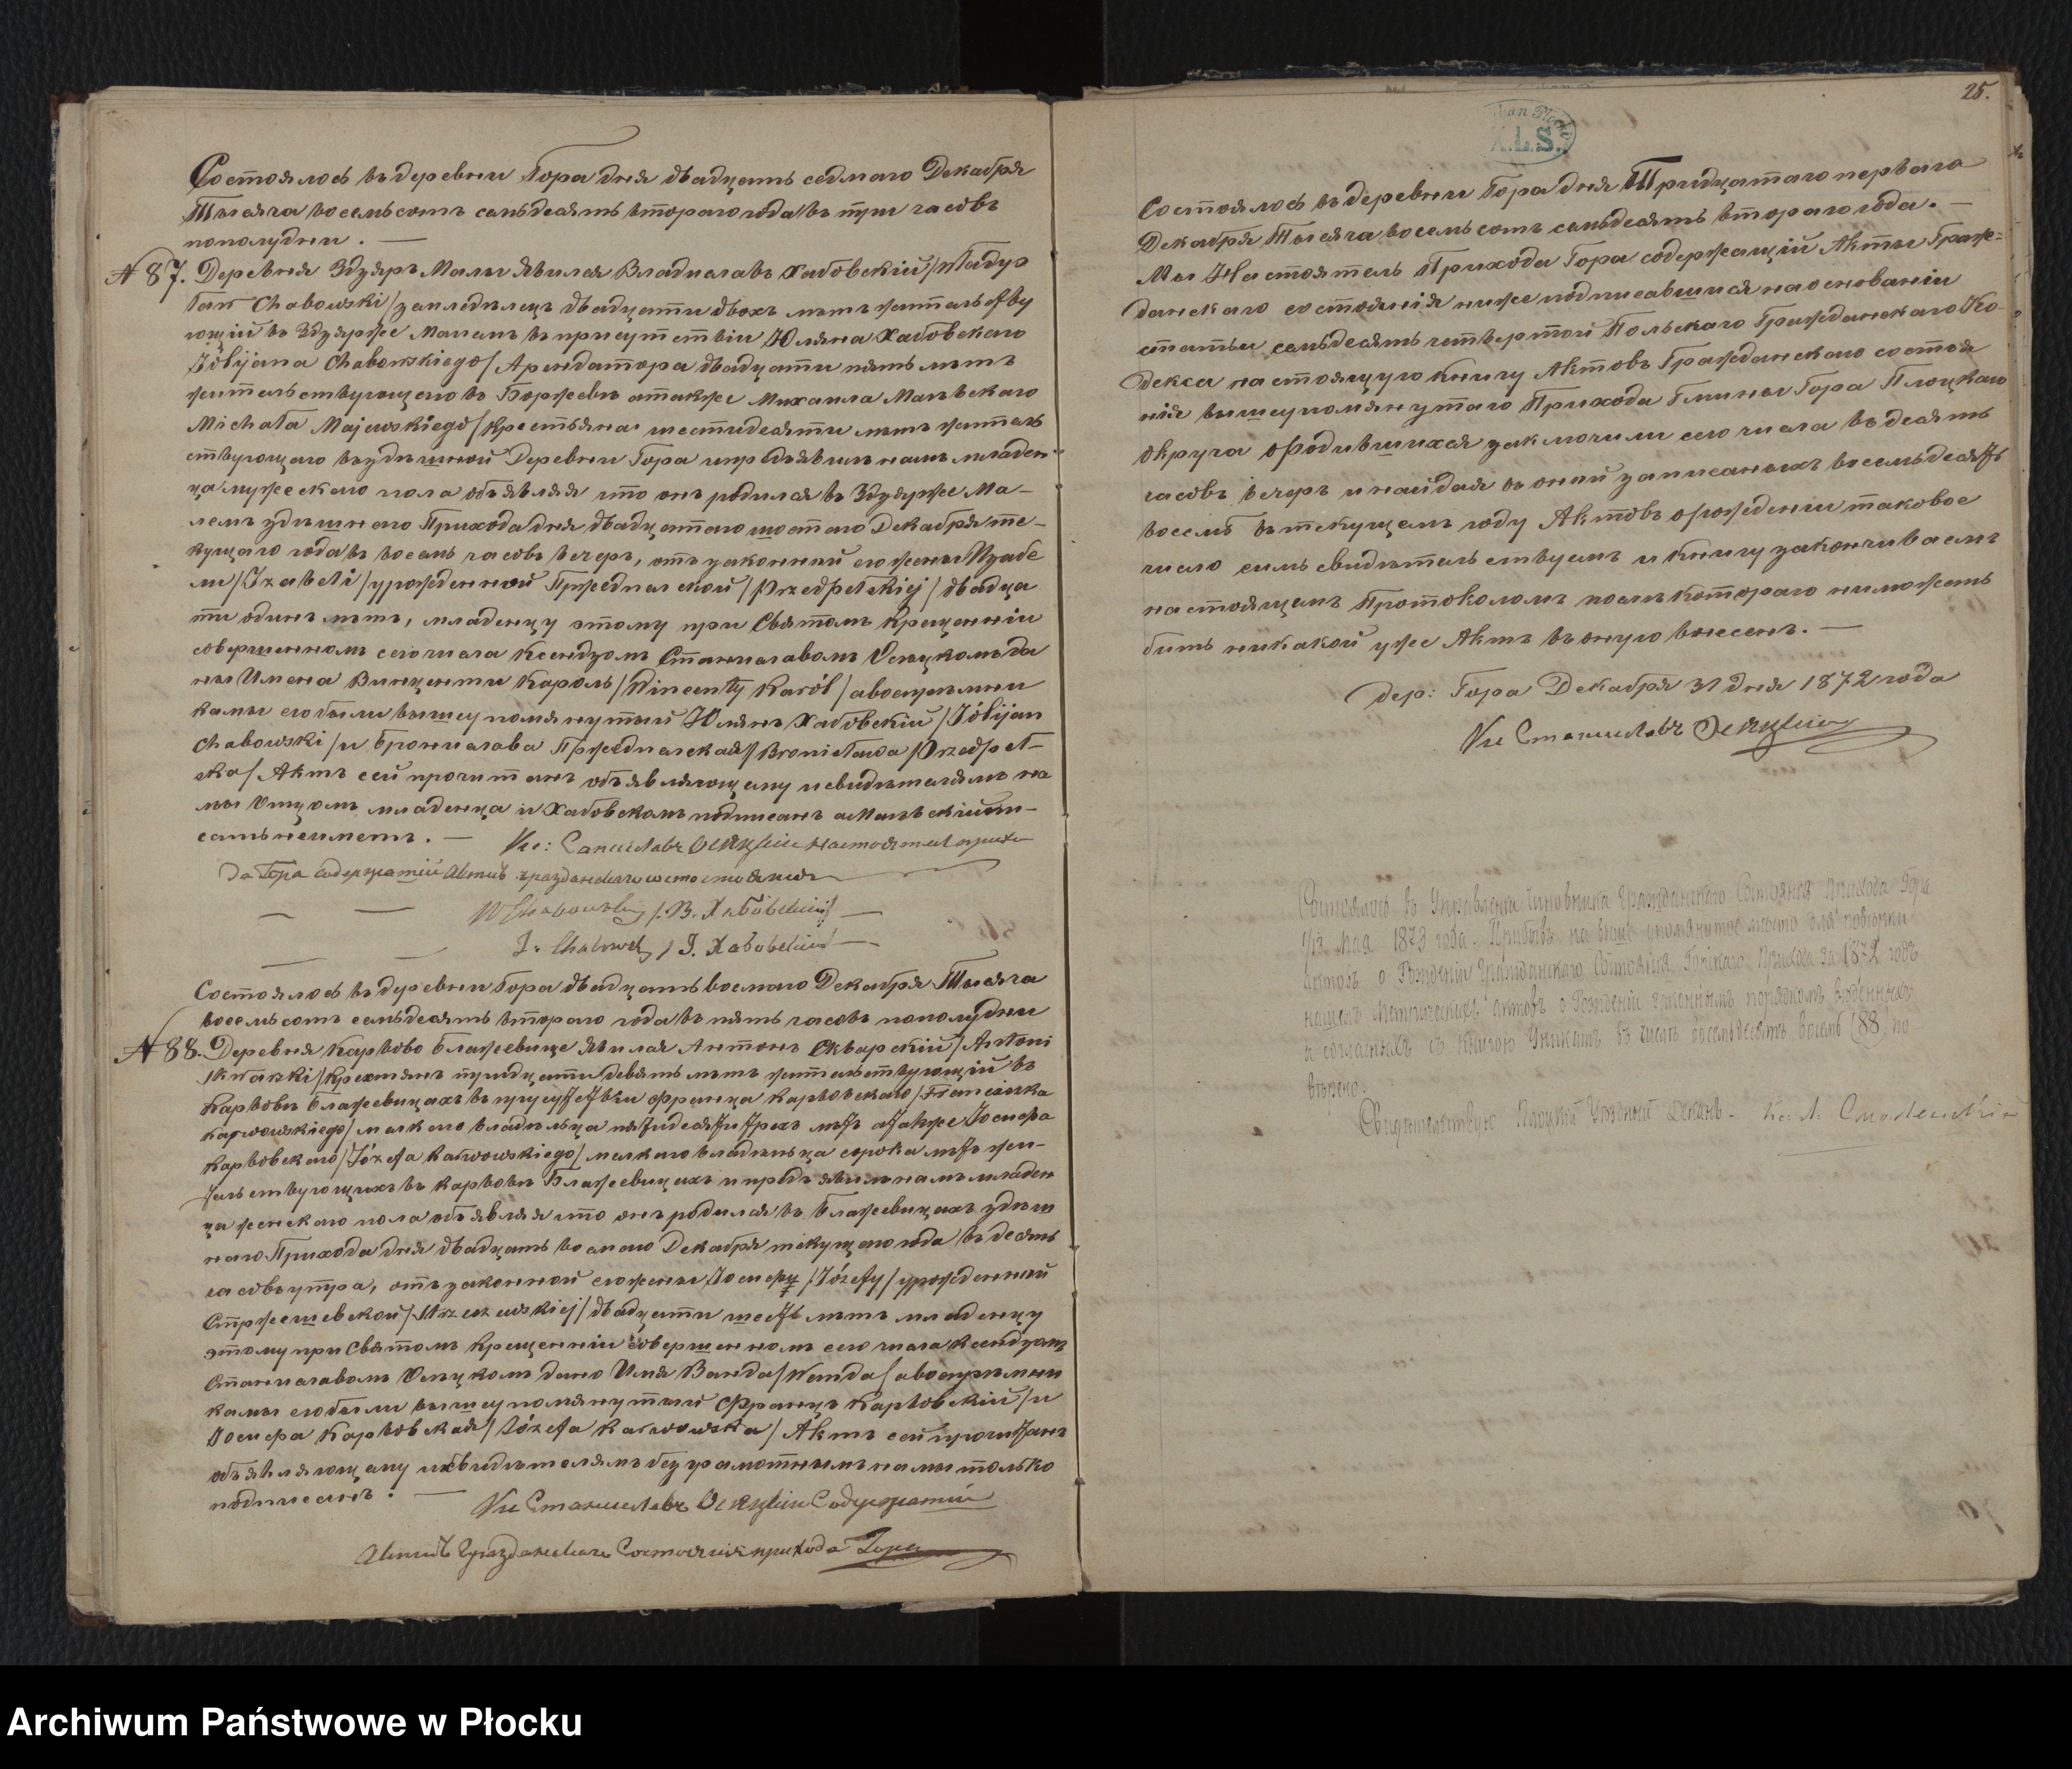 Состоялось въ деревни Гора дня двадцать седмаго Декабря
Тысяча восемьсотъ семьдесятъ втораго года въ три часовъ
пополудни. —
№ 87. Деревня Здзяръ Малы явился Владиславъ Хабовскій /Władys
ław Chabowski/ земледѣлецъ двадцати двохъ лѣтъ жительству
ющій въ Здзярже Малемъ въ присутствіи Юляна Хабовскаго
Jólijana Chabowskiego/ Арендатора двадцати пять лѣтъ
жительствующего въ Боржевѣ атакже Михаила Маевскаго
Michała Majewskiego/ крестьяна шестидесяти лѣтъ житель
ствующаго въ здѣшной Деревни Гора и предъявилъ намъ младен
ца мужескаго пола объявляя что онъ родился въ Здзярже Ма-
лемъ здѣшнего Прихода дня двадцатаго шостаго Декабря те-
кущаго года въ восемь часовъ вечеръ, отъ законный его жены Изабе
ли /Izabeli/ урожденной Пржедпелской /Przedpełskiej/ двадца
ти одинъ лѣтъ, младенцу этому при Святомъ Крещенніи
совершенномъ сего числа Ксендзомъ Станиславомъ Осецкомъ да
ны Имена Винценти Кароль /Wincenty Karól/ авосприемни
ками его были вышеупомянутый Юлянъ Хабовскій /Jólijan
Chabowski/ и Бронислава Пржедпелская /Bronisława Przedpeł-
ska/ Актъ сей прочитанъ объявляющему и свидѣтелямъ на
мы Отцомъ младенца и Хабовскомъ подписанъ аМаевскій пи-
сать неиметъ. — Кс: Саниславъ Осецкій настоятель прихо
да Гора Содержатій Актовъ гражданскаго состоянія
W Chabowski /В. Хабовскій/ —
J. Chabowski /J. Хабовскій/ —
Состоялось въ деревни Гора двадцать восмаго Декабря Тысяча
восемьсотъ семьдесятъ втораго года въ пять часовъ пополудни
№ 88. Деревня Карвово Блажеевице явился Антонъ Скварскій /Antoni
Skwarski/ крестянъ тридцати девять лѣтъ жительствующій въ
Карвовѣ Блажеевицахъ въ присутствіи Франца Карвовскаго /Franciszka
Karwowskiego/ малкаго владѣльца пятидесяти трехъ лѣтъ атакже Іосифа
Карвовскаго /Józefa Karwowskiego/ малкаго владѣльца сорока лѣтъ жи-
тельствующихъ въ Карвовѣ Блажеевицахъ и предъявилъ намъ младен
ца женскаго пола объявляя что онъ родился въ Блажевицахъ здѣш
наго Прихода дня двадцать восмаго Декабря текущаго года въ десять
часовъ утра, отъ законной его жены Іосифы /Józefy/ урожденный
Стржешевской /Strzeszewskiej/ двадцати шесть лѣтъ младенцу
этому при Святомъ Крещенніи совершенномъ сего числа Ксендзомъ
Станиславомъ Осецкомъ дано Имя Ванда /Wanda/ авосприемни
ками его были вышеупомянутый Францъ Карвовскій /и
Іосифа Карвовская /Józefa Karwowska/ Актъ сей прочитанъ
объявляющему и свидѣтелямъ безграмотнымъ намы только
подписанъ. — Кс Станиславъ Осецкій Содержатій
Актовъ Гражданскаго Состоянія прихода Гора
25.
K.L.S.
Состоялось въ деревни Гора дня Тридцатаго перваго
Декабря Тысяча восемьсотъ семьдесятъ втораго года. —
Мы Настоятель Прихода Гора содержащій Акты Граж-
данскаго состоянія ниже подписавшися на основаніи
статьи семьдесятъ четвертой Польскаго Гражданскаго Ко-
декса настоящую книгу Актовъ Гражданскаго состоя
нія вышеупомянутаго Прихода Гмины Гора Плоцкаго
округа о Родившихся заключили сего числа въ десять
часовъ вечеръ и найдая въ оной записаныхъ восемьдесять
восемь въ текущемъ году Актовъ о рожденіи таковое
число симъ свидѣтельствуемъ и книгу закончиваемъ
настоящемъ Протоколомъ послѣ котораго неможетъ
быть никакой уже Актъ въ оную внесенъ. —
Дер: Гора Декабря 31 дня 1872 года
Кс Станиславъ Осецкій
Состоялось въ Управленіи Чиновника Гражданскаго Состоянія Прихода Гора
1/13 Мая 1873 года. Прибывъ на выше упомянутое мѣсто для повѣрки
актовъ о Рожденіи Гражданскаго Состоянія Горскаго Прихода за 1872 годъ
нашелъ Метрическихъ актовъ о Рожденіи законнымъ порядкомъ веденныхъ
и согласныхъ съ книгою Уникатъ въ числѣ восемьдесять восемь (88) по
вѣрено.
Свидѣтельствую Плоцкій Уѣздный Деканъ. Кс. А. Смоленскій
Archiwum Państwowe w Płocku